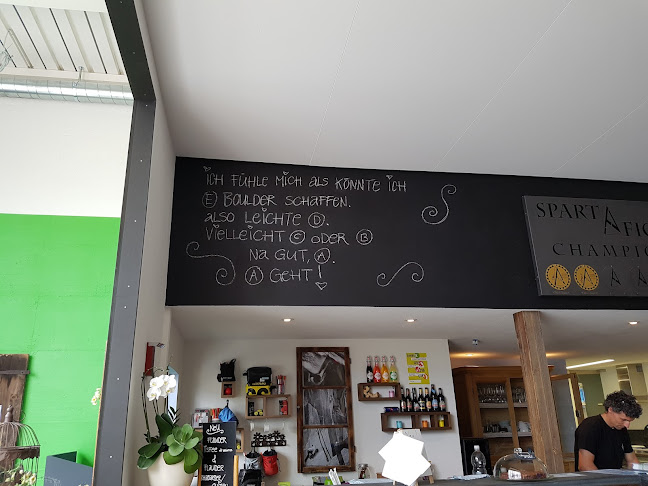 ich fühle mich als könnte ich
Ⓔ Boulder schaffen.
also leichte Ⓓ.
vielleicht Ⓒ oder Ⓑ
na gut, Ⓐ.
Ⓐ geht!
SPART
CHAMPIO
Neu
&